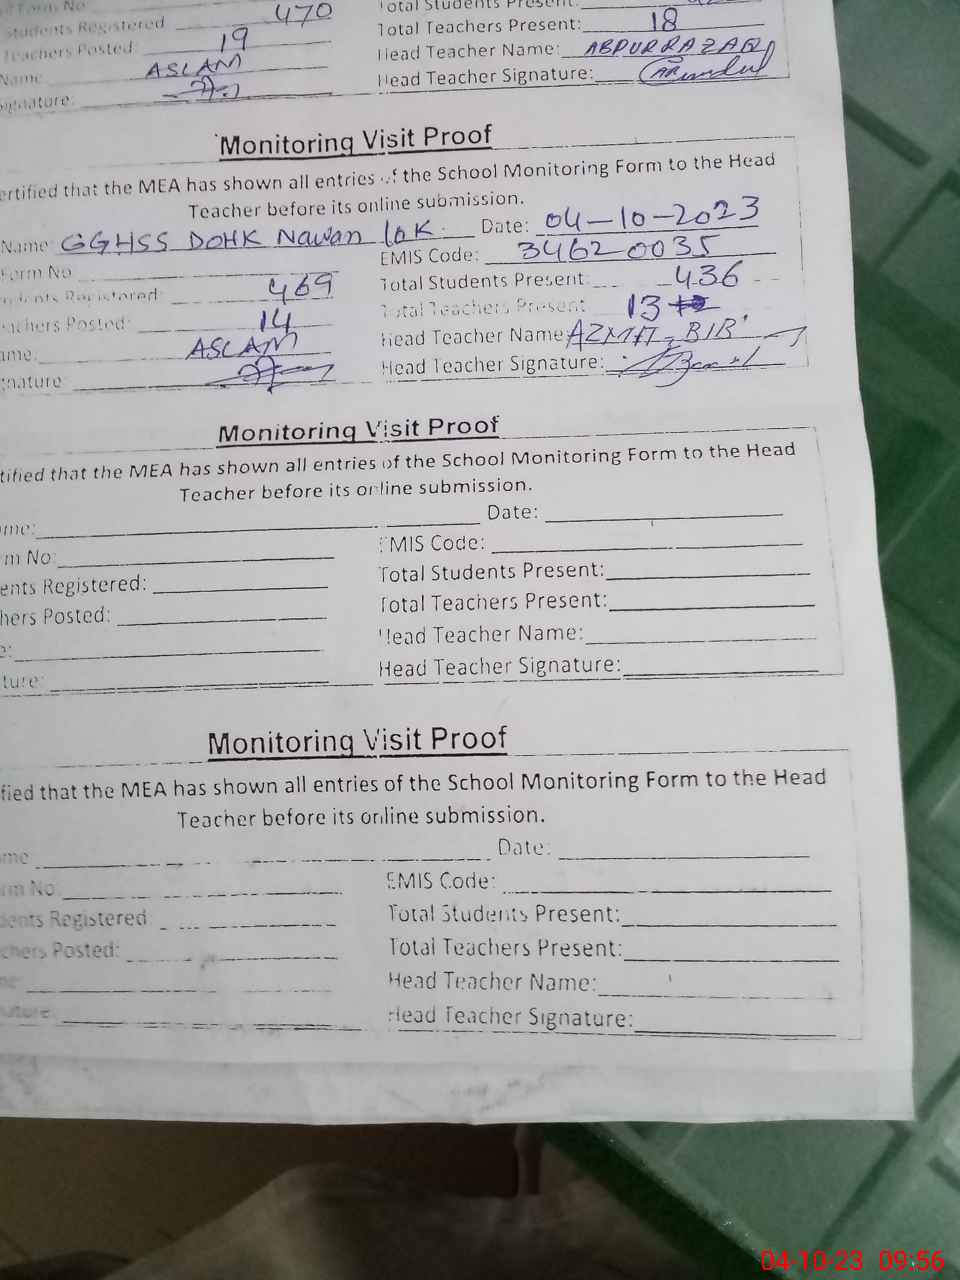 Form No
Students Registered 470 Total Students Present:
Teachers Posted: 19 Total Teachers Present: 18
Name: ASLAM Head Teacher Name: ABDURRAZAQ
Signature: Head Teacher Signature:
Monitoring Visit Proof
ertified that the MEA has shown all entries of the School Monitoring Form to the Head
Teacher before its online submission.
Name: GGHSS DOHK Nawan lok. Date: 04-10-2023
Form No EMIS Code: 34620035
udents Registered: 469 Total Students Present: 436
achers Posted: 14 Total Teachers Present 13
ame: ASLAM Head Teacher Name AZMA BIBI
gnature Head Teacher Signature:
Monitoring Visit Proof
tified that the MEA has shown all entries of the School Monitoring Form to the Head
Teacher before its online submission.
ome: Date:
rm No EMIS Code:
ents Registered: Total Students Present:
hers Posted: Total Teachers Present:
e: Head Teacher Name:
ture: Head Teacher Signature:
Monitoring Visit Proof
fied that the MEA has shown all entries of the School Monitoring Form to the Head
Teacher before its online submission.
me Date:
rm No EMIS Code:
dents Registered Total Students Present:
chers Posted: Total Teachers Present:
me: Head Teacher Name:
ature: Head Teacher Signature:
04-10-23 09:56